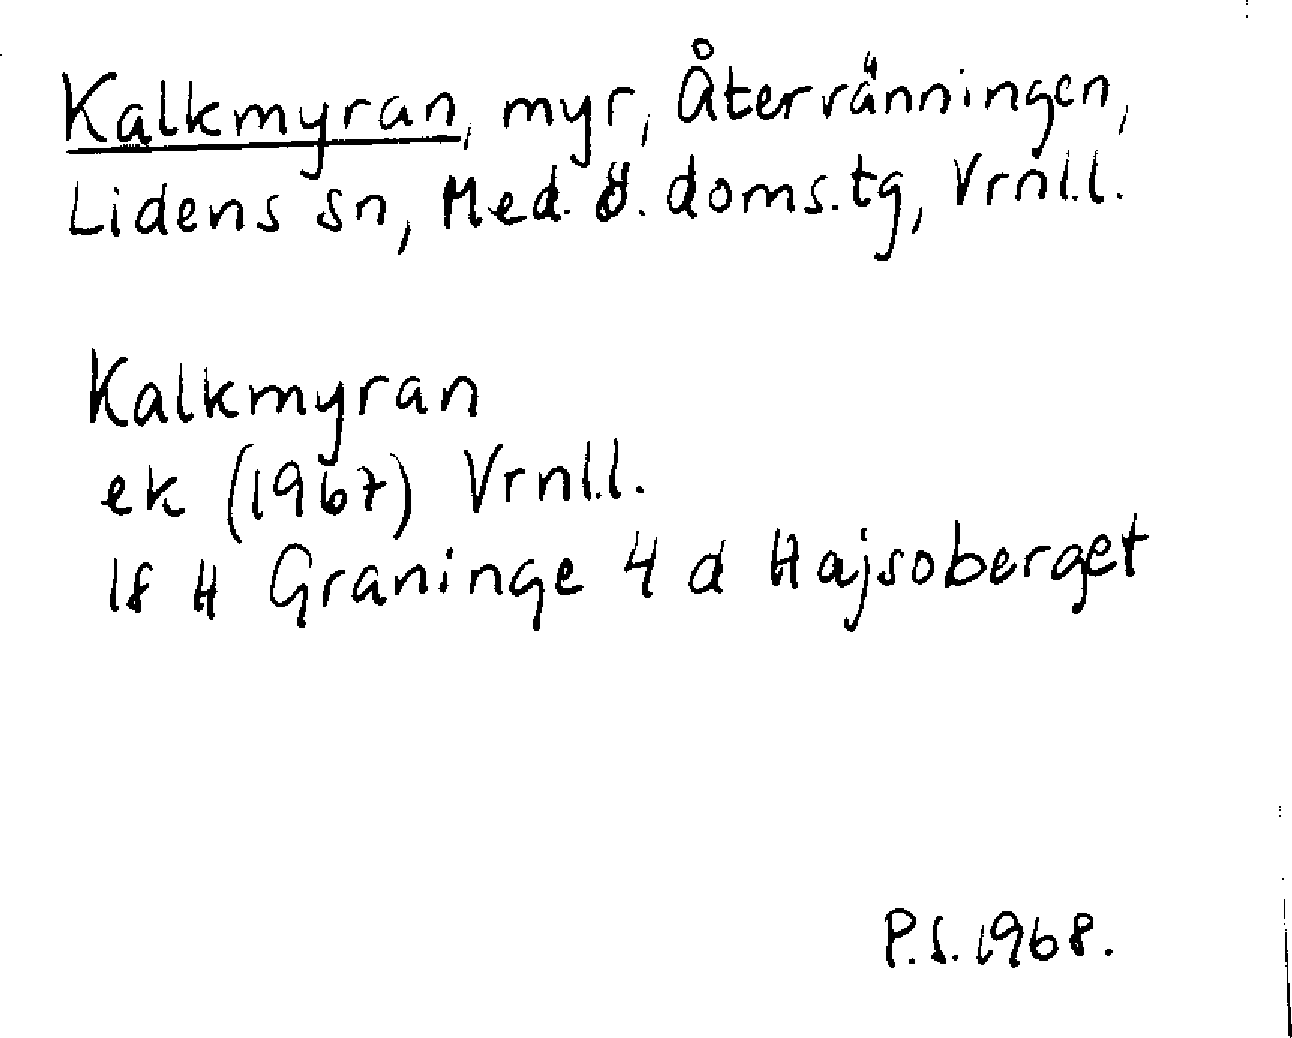 Kalkmyran, myr, Återvänningen,
Lidens sn, Med. ö. doms.tg, Vrnl.l.
Kalkmyran
ek (1967) Vrnl.l.
18 H Graninge 4 d Hajsoberget
P.S. 1968.